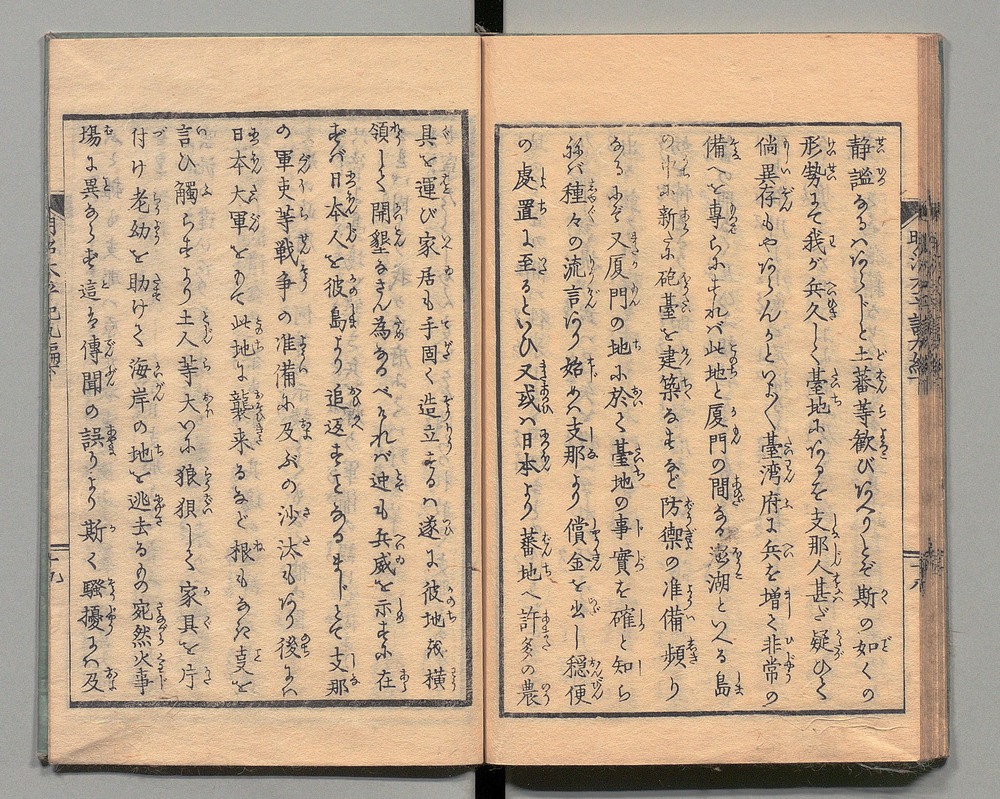 静謐なるハなしと土蕃等歓びあへりとぞ斯の如くの
形勢にて我が兵久しく臺地にあるを支那人甚ざ疑ひて
倘異存もやあらんかといよ〱臺湾府に兵を増て非常の
備へを専らにすれバ此地と厦門の間なる澎湖といへる島
の中に新に砲臺を建築なすなど防禦の准備頻り
なるにぞ又厦門の地に於て臺地の事實を確と知ら
ねバ種々の流言あり始めハ支那より償金を出し穏便
の處置に至るといひ又或ハ日本より蕃地へ許多の農
具を運び家居も手固く造立なるハ遂に彼地を横
領して開墾なさん為なるべけれバ迚も兵威を示すに在
ずバ日本人を彼島より追返すことなるまじとて支那
の軍吏等戦争の准備に及ぶの沙汰もあり後にハ
日本大軍をもて此地に襲来るなど根もなき事を
言ひ觸らすより土人等大いに狼狽して家具を片
付け老幼を助けて海岸の地を逃去るもの宛然火事
場に異ならず這は傳聞の誤りより斯く騒擾にハ及
明治太平記九編下
十八
十九